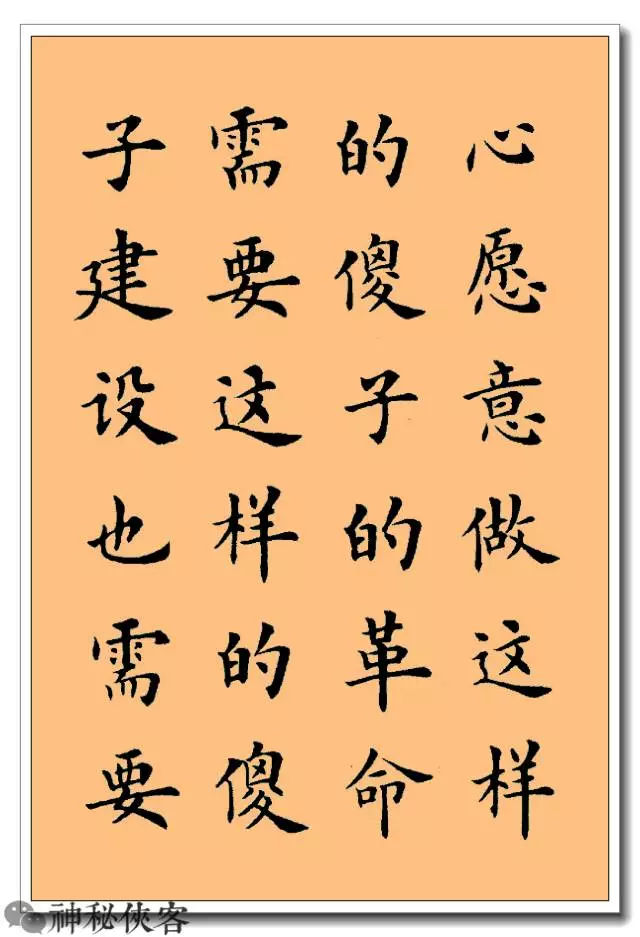 心愿意做这样
的傻子的革命
需要这样的傻
子建设也需要
神秘侠客